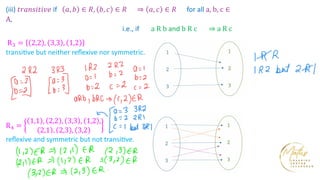 (iii) transitive if (a, b) ∈ R, (b, c) ∈ R ⇒ (a, c) ∈ R for all a, b, c ∈
A,
i.e., if a R b and b R c ⇒ a R c
R₃ = {(2,2), (3,3), (1,2)}
transitive but neither reflexive nor symmetric.
2R2 3R3 1R2 2R2 a=1
a=2 a=3 a=1 b=2 b=2
b=2 b=3 b=2 c=2 c=2
aRb, bRc → (1,2) ∈ R
1 1
2 2
3 3
1 R R
1R2 but 2R1
R₄ = {(1,1), (2,2), (3,3), (1,2), (2,1), (2,3), (3,2)}
a=3 3R2
b=2 2R1
c=1 but 3R1
reflexive and symmetric but not transitive.
(1,2)∈R ⇒ (2,1) ∈ R (2,3)∈R
(2,1)∈R ⇒ (1,2) ∈ R ⇒ (3,2)∈R
(3,2)∈R ⇒ (2,3)∈R.
1 1
2 2
3 3